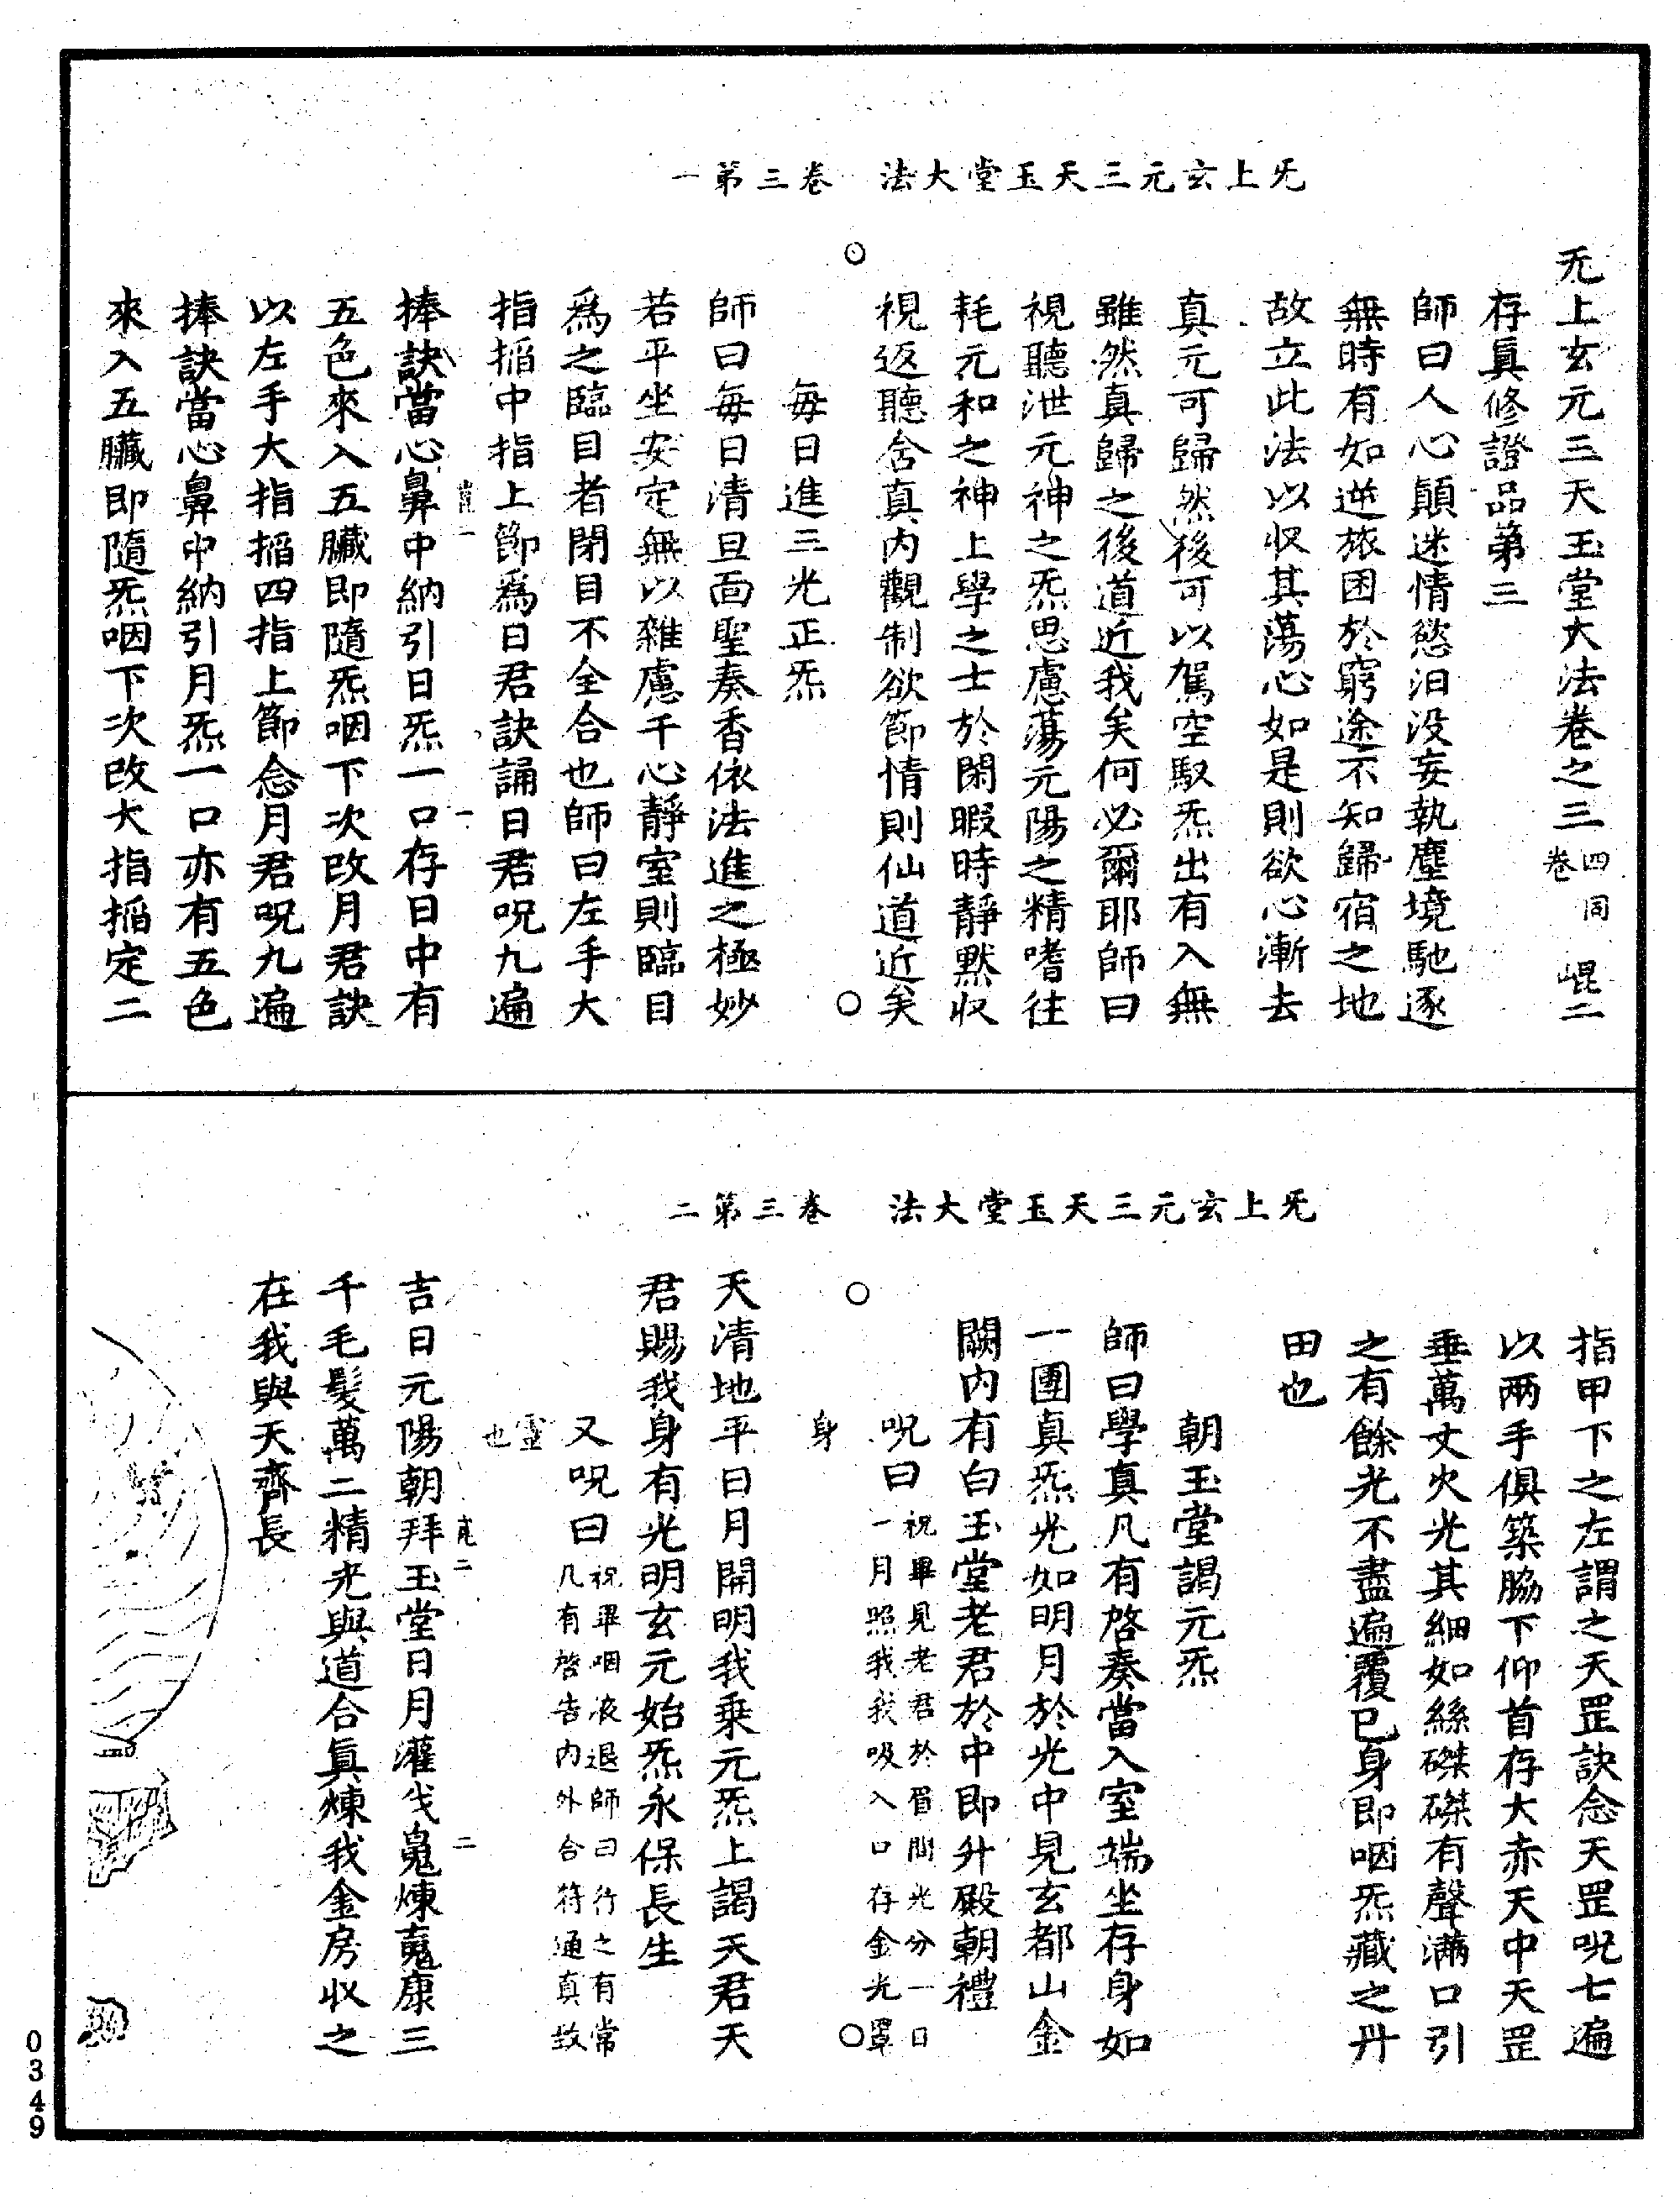 旡上玄元三天玉堂大法　卷三第一
旡上玄元三天玉堂大法卷之三 四同卷 崐二
存眞修證品第三
師曰人心顛迷情慾汩没妄執塵境馳逐
無時有如逆旅困於窮途不知歸宿之地
故立此法以収其蕩心如是則欲心漸去
真元可歸然後可以駕空馭炁出有入無
雖然真歸之後道近我矣何必爾耶師曰
視聽泄元神之炁思慮蕩元陽之精嗜往
耗元和之神上學之士於閑暇時靜默収
視返聽舍真内觀制欲節情則仙道近矣
每日進三光正炁
師曰每日清旦面聖奏香依法進之極妙
若平坐安定無以雜慮干心靜室則臨目
爲之臨目者閉目不全合也師曰左手大
指搯中指上節爲日君訣誦日君呪九遍
捧訣當心鼻中納引日炁一口存日中有
五色來入五臟即隨炁咽下次改月君訣
以左手大指搯四指上節念月君呪九遍
捧訣當心鼻中納引月炁一口亦有五色
來入五臟即隨炁咽下次改大指搯定二
旡上玄元三天玉堂大法　卷三第二
指甲下之左謂之天罡訣念天罡呪七遍
以兩手俱築脇下仰首存大赤天中天罡
垂萬丈火光其細如絲磔磔有聲滿口引
之有餘光不盡遍覆已身即咽炁藏之丹
田也
朝玉堂謁元炁
師曰學真凡有啓奏當入室端坐存身如
一團真炁光如明月於光中見玄都山金
闕内有白玉堂老君於中即升殿朝禮
呪曰 祝畢見老君於眉間光分一日一月照我我吸入口存金光罩
身
天清地平日月開明我乗元炁上謁天君天
君賜我身有光明玄元始炁永保長生
又呪曰 祝畢咽液退師曰行之有常凡有啓告内外合符通真故
靈也
吉日元陽朝拜玉堂日月灌我䰟煉䰟康三
千毛髪萬二精光與道合眞煉我金房収之
在我與天齊長
0349